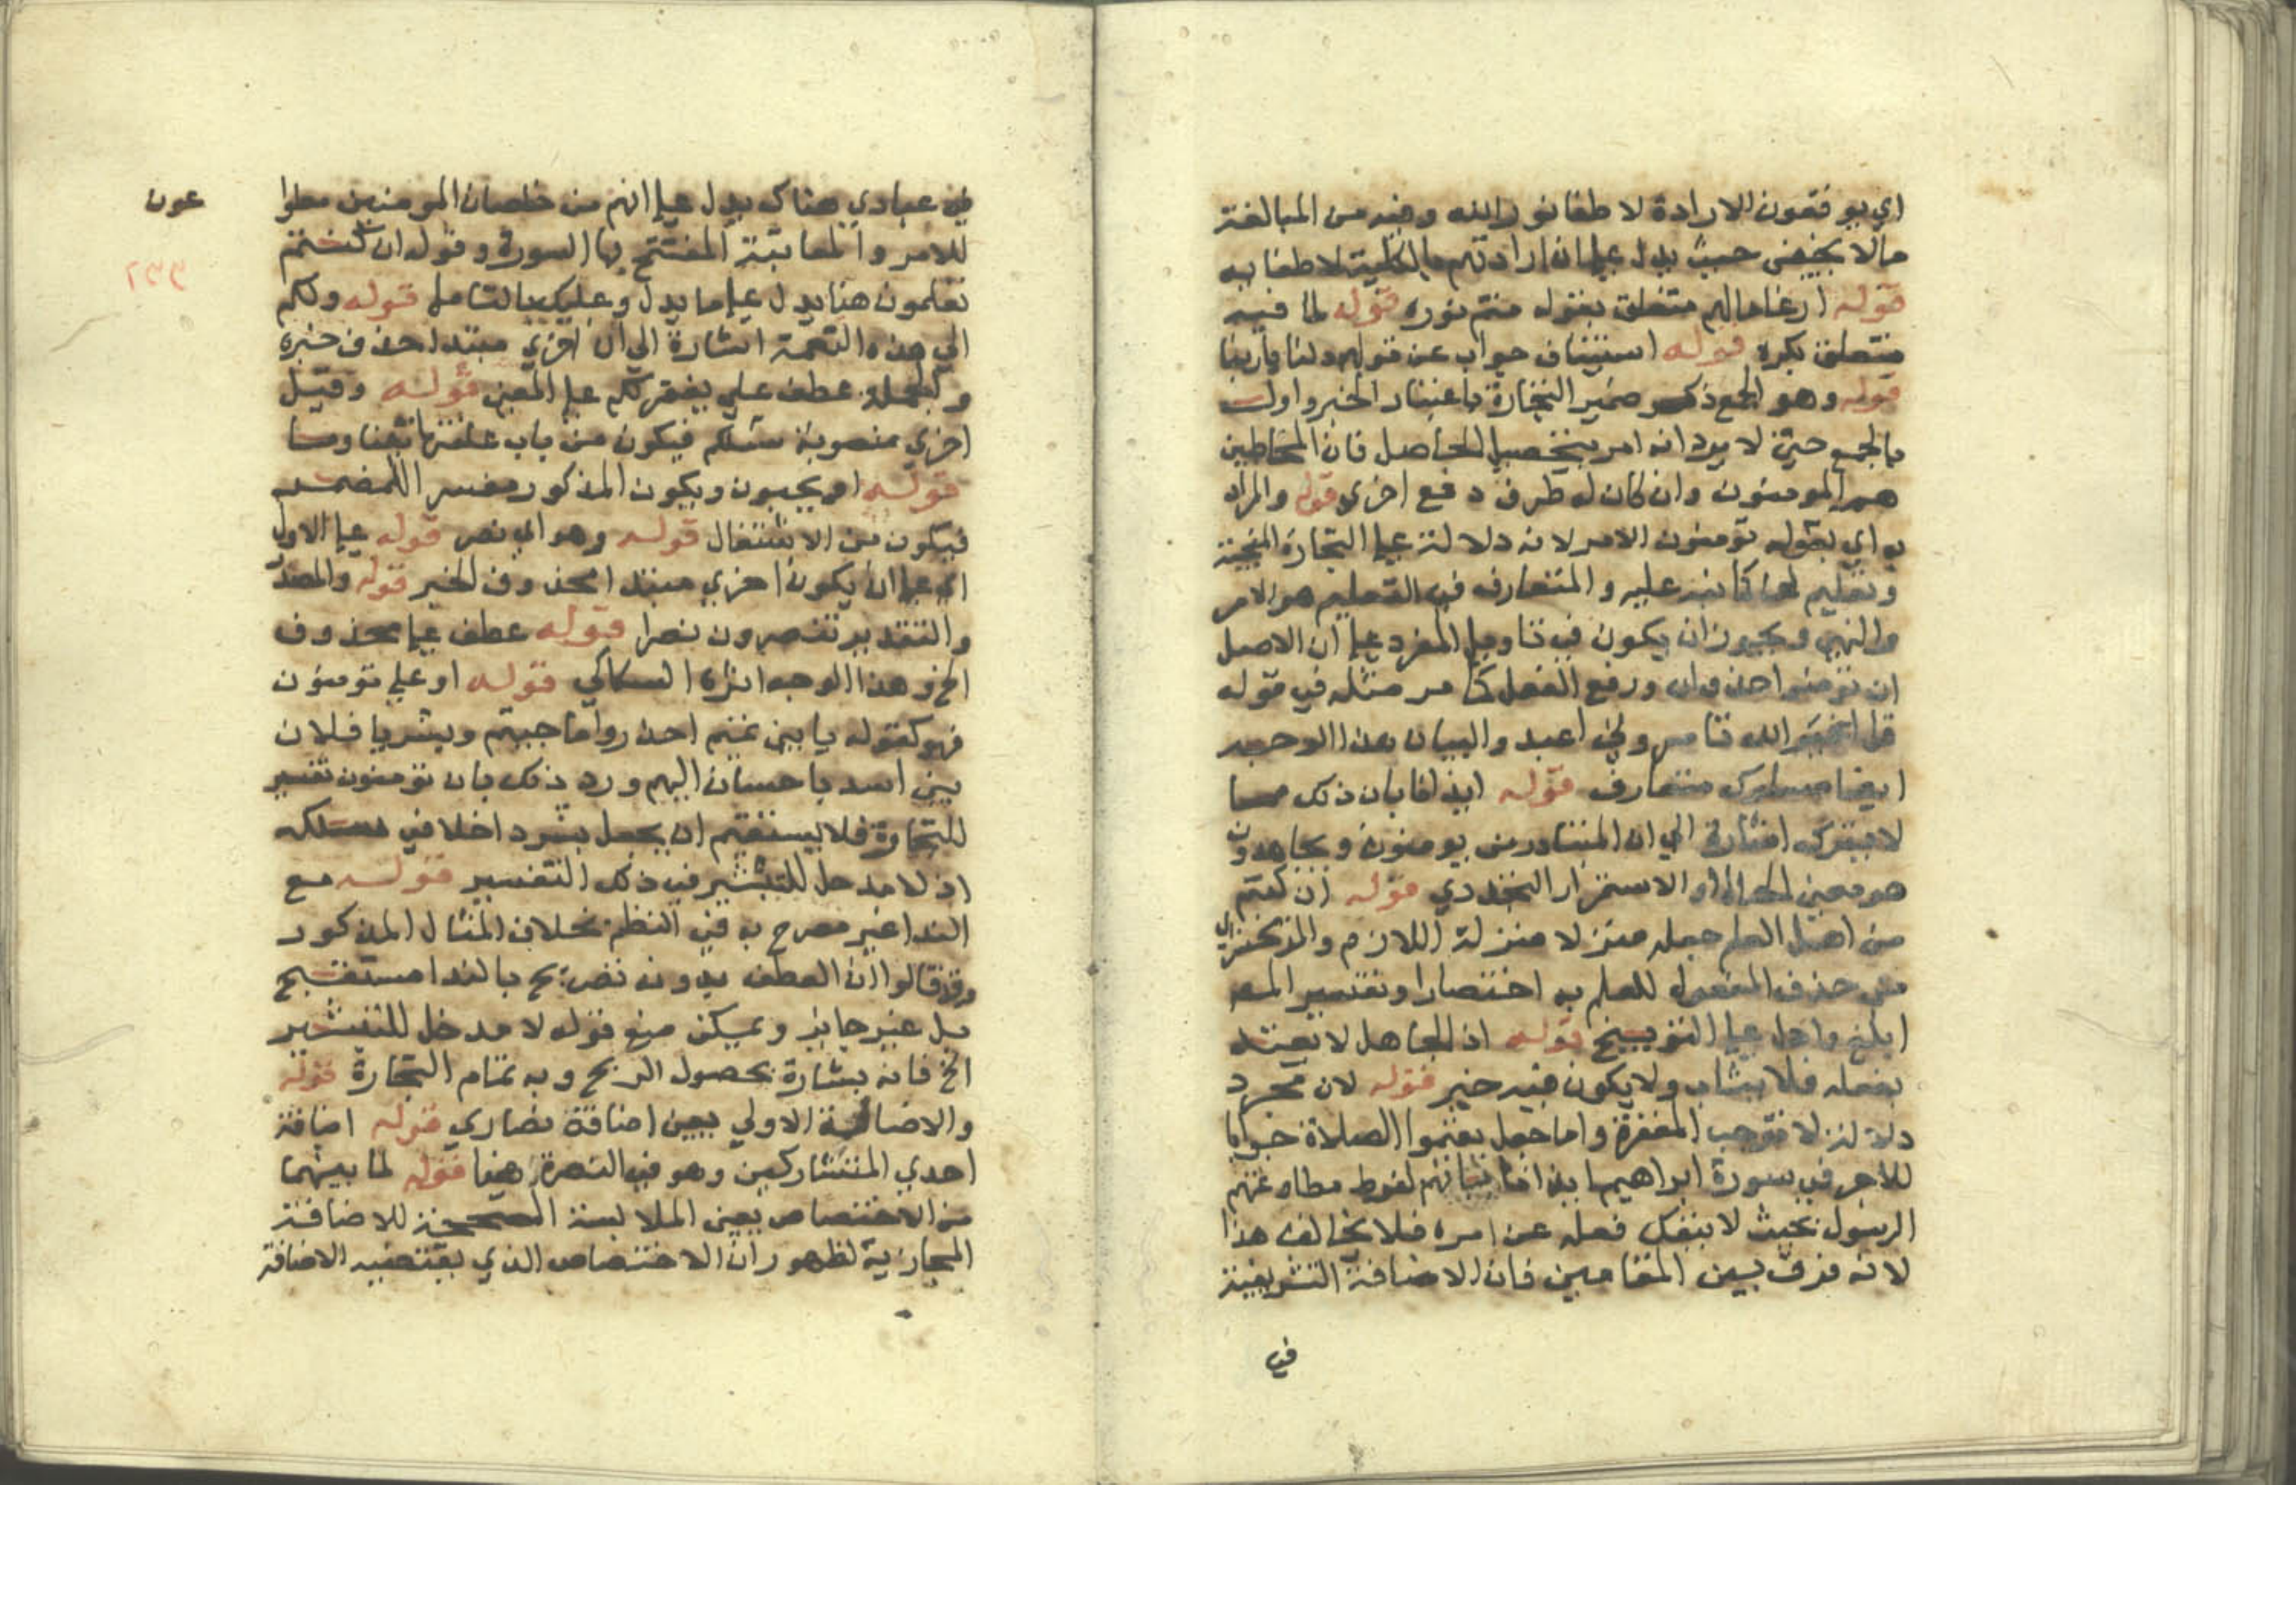 اي يوقعون الارادة لاطفا نور الله وفيه من المبالغة
مالا يخفى حيث يدل على ان ارادتهم بالكلية لاطفا به
قوله ارغاما لهم متعلق بقوله متم نوره قوله لما فيه
متعلق بكره قوله استيناف جواب عن قولهم دلنا ياربنا
قوله وهو الجمع ذكر ضمير التجارة باعتبار الخبر واولت
بالجمع حتى لا يرد انه امر بتحصيل الحاصل فان المخاطبين
هم المومنون وان كان له طرف دفع اخرى قوله والمراد
به اي بقوله تومنون الامر لانه دلالة على التجارة المنجية
وتعليم لها كما نبه عليه والمتعارف في التعليم هو الامر
والنهي ويجوز ان يكون في تاويل المفرد على ان الاصل
ان تومنوا حذف ان ورفع الفعل كما مر مثله في قوله
قل افغير الله تامروني اعبد والبيان بهذا الوجه
ايضا مسلوك متعارف قوله ايذانا بان ذلك مما
لا يترك اشارة الى ان المتبادر من يومنون ويجاهدون
هو معنى الحال او الاستمرار التجددي قوله ان كنتم
من اهل العلم جعله منزلا منزلة اللازم والزمخشري
على حذف المفعول للعلم به اختصارا وتفسير المص
ابلغ وادل على التوبيخ قوله اذ الجاهل لا يعتد
بفعله فلا يثاب ولا يكون فيه خير قوله لان مجرد
دلالته لا توجب المغفرة واما جعل يقيموا الصلاة جوابا
للامر في سورة ابراهيم ايذانا بانهم لفرط مطاوعتهم
الرسول بحيث لا ينفك فعله عن امره فلا يخالف هذا
لانه فرق بين المقامين فان الاضافة التشريفية
في
في عبادي هناك يدل على انهم من خلصان المومنين
عون
٢٣٣
للامر والمعاتبة المفتتح بها السورة وقوله ان كنتم
تعلمون هنا يدل على ما يدل وعليك بالتامل قوله ولكم
الى هذه النعمة اشارة الى ان اخرى مبتدا حذف خبره
والجملة عطف على يغفر لكم على المعنى قوله وقيل
اخرى منصوبة فيكون من باب علفتها تبنا وما
قوله او يحبون ويكون المذكور مفسرا للمضمر
فيكون من الاشتغال قوله وهو اي نصر قوله على الاول
اي على ان يكون اخرى مبتدا محذوف الخبر قوله والمصدر
والتقدير تنصرون نصرا قوله عطف على محذوف
الخ وهذا الوجه اثره السكاكي قوله او على تومنون
فهو كقوله يا بني تميم احذروا ما جنيتم وبشر يا فلان
بني اسد باحسان اليهم ورد ذلك بان تومنون تفسير
للتجارة فلا يستقيم ان يجعل بشر داخلا في مسلكه
اذ لا مدخل للتبشير في ذلك التفسير قوله مع
الندا غير مصرح به في النظم بخلاف المثال المذكور
وقد قالوا ان العطف بدون تصريح بالندا مستقبح
بل غير جايز ويمكن منع قوله لا مدخل للتبشير
الخ فانه بشارة بحصول الربح وبه تمام التجارة قوله
والاضافة الاولى يعني اضافة نصاري قوله اضافة
احدي المتشاركين وهو في النصرة هنا قوله لما بينهما
من الاختصاص يعني الملابسة المصححة للاضافة
المجازية لظهور ان الاختصاص الذي يقتضيه الاضافة